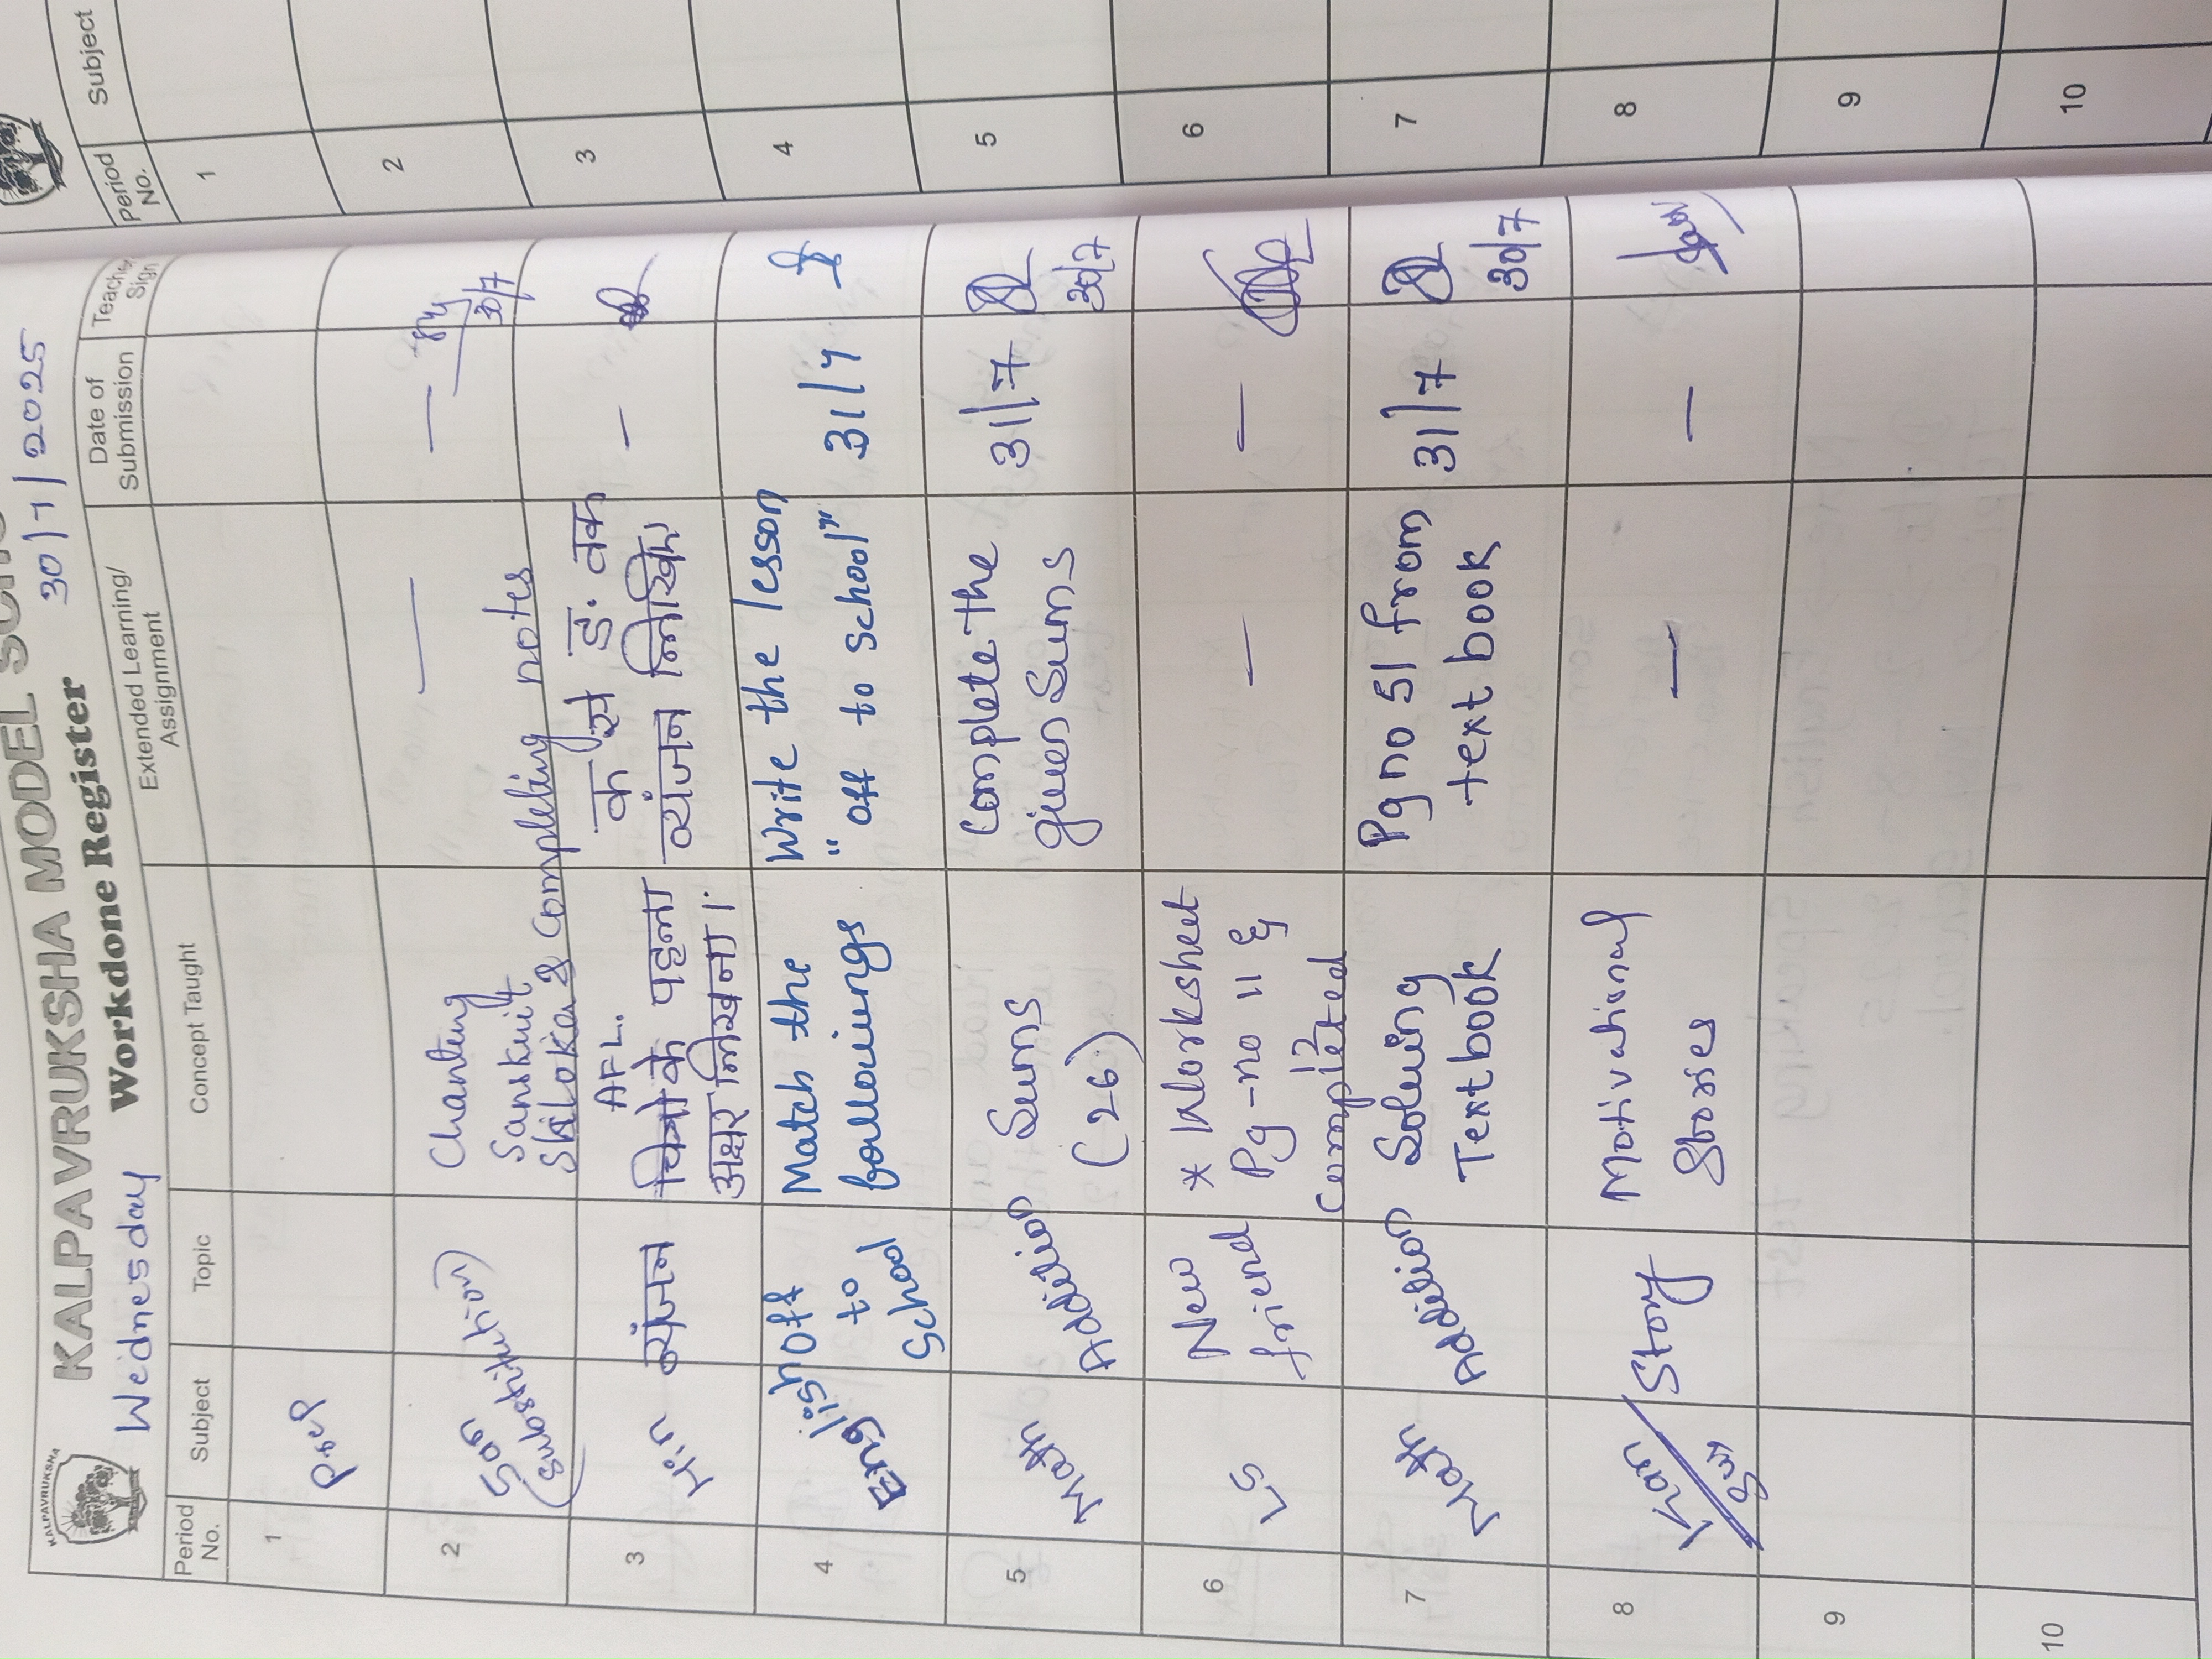 KALPAVRUKSHA
KALPAVRUKSHA MODEL
Wednesday Workdone Register 30/7/2025
Period No. Subject Topic Concept Taught Extended Learning/ Assignment Date of Submission Teacher Sign
1
2 San (Substitution) Chanting Sanskrit Shloka & Completing notes — — 30/7
3 Hin व्यंजन AFL. चित्रो के पहला अक्षर लिखना। क से ङ. तक व्यंजन लिखिए —
4 English Off to School Match the followings Write the lesson "off to school" 31/7
5 Math Addition Sums (26) Complete the given Sums 31/7 30/7
6 LS New friend * Worksheet Pg-no 11 & 12 Completed — —
7 Math Addition Solving Textbook Pg no 51 from text book 31/7 30/7
8 Kan / Story Motivational Stories — —
9
10
Period No. Subject
1
2
3
4
5
6
7
8
9
10